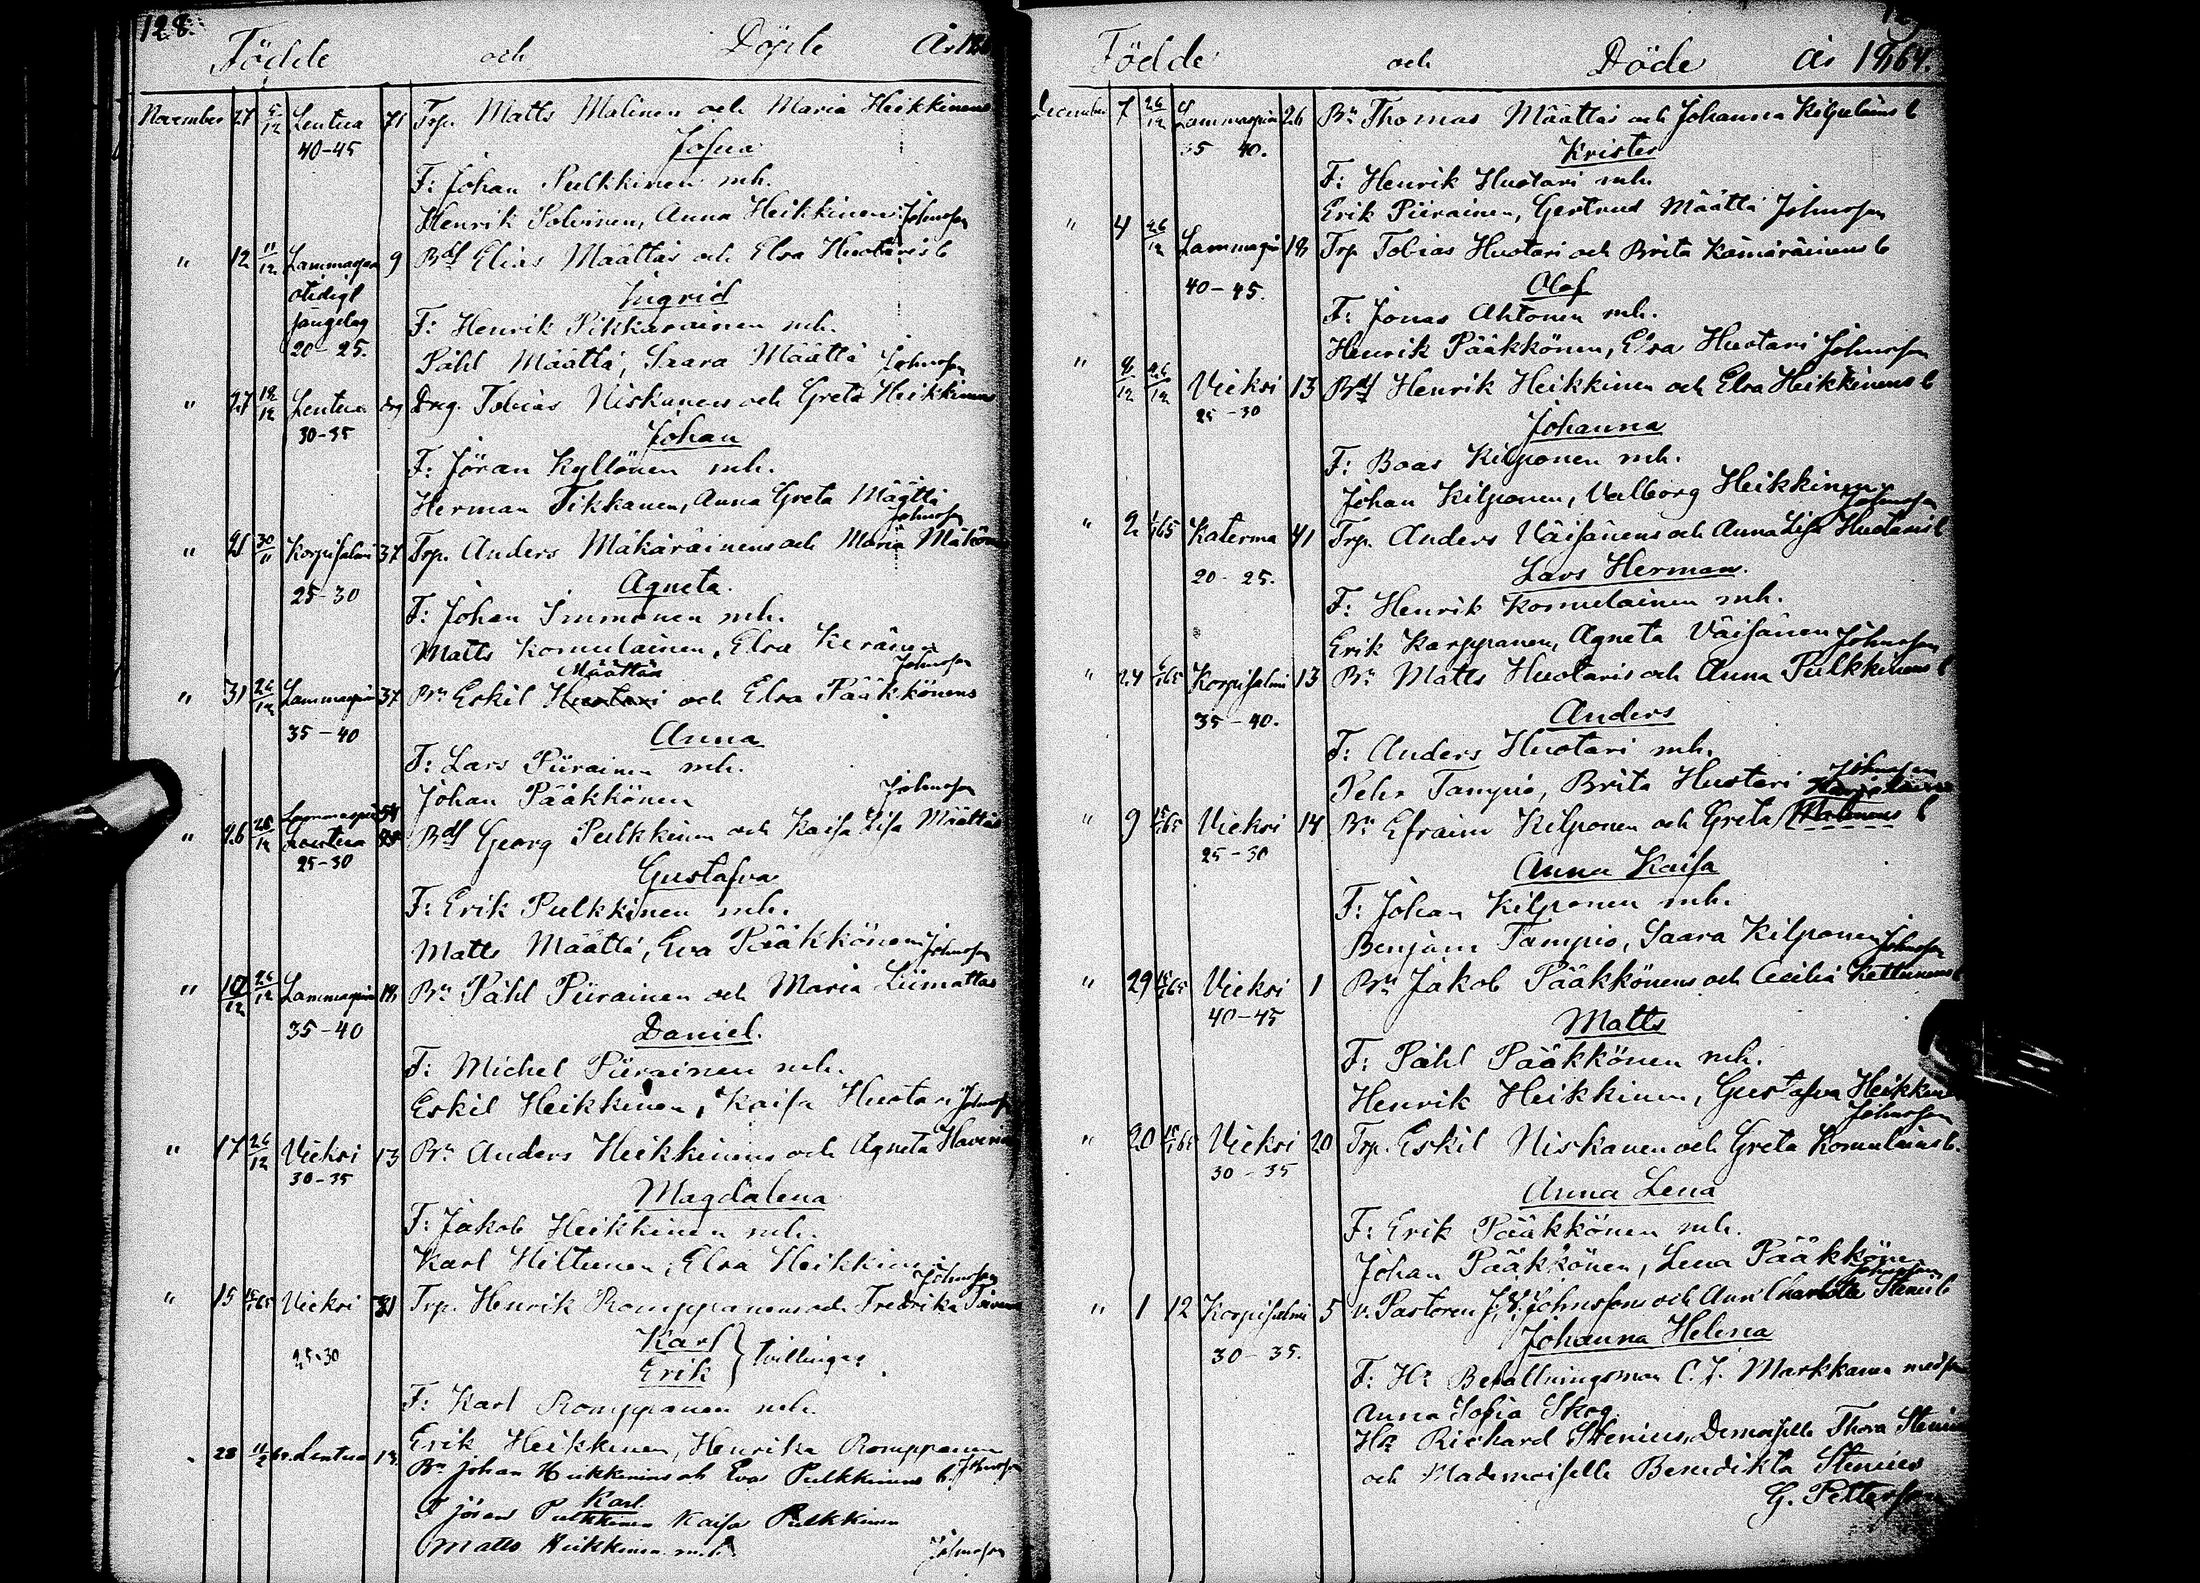 128.
Födde och Döpte År
November 27 5/12 Lentua 71 Trp. Matts Malinen och Maria Heikkinens
40-45 Josua
F: Johan Pulkkinen mh.
Henrik Polvinen, Anna Heikkinen Johnsson
" 12 11/12 Lammaspää 9 Bdf Elias Määttäs och Elsa Huotaris b
Ingrid
F: Henrik Pikkarainen mh.
20-25. Påhl Määttä, Saara Määttä Johnsson
" 27 12/12 Lentua Drg. Tobias Niskanens och Greta Heikkinens
30-35 Johan
F: Jöran Kyllönen mh.
Herman Tikkanen, Anna Greta Määttä
Johnsson
" 25 30/11 Korpisalmi 37 Trp. Anders Mäkäräinens och Maria
25-30 Agneta.
F: Johan Immonen mh.
Matts Komulainen, Elsa Keränen
Määttäs Johnsson
" 31 26/12 Lammaspää 37 Bn Eskil Huotari och Elsa Pääkkönens
35-40 Anna
F: Lars Piirainen mh.
Johan Pääkkönen Johnsson
" 26 26/12 Lentua Bdf Georg Pulkkinen och Kaisa Lisa Määttäs
25-30 Gustafva
F: Erik Pulkkinen mh.
Matts Määttä, Eva Pääkkönen Johnsson
" 10/12 26/12 Lammaspää 18 Bn Påhl Piirainen och Maria Liimattas
35-40 Daniel.
F: Michel Piirainen mh.
Eskil Heikkinen, Kaisa Huotari Johnsson
" 17 26/12 Vieksi 13 Bn Anders Heikkinens och Agneta
30-35 Magdalena
F: Jakob Heikkinen mh.
Karl Hiltunen, Elsa Heikkinen
Johnsson
" 15 65 Vieksi 31 Trp. Henrik Romppanens och Fredrika
25-30 Karl
Erik } tvillingar
F: Karl Romppanen mh.
Erik Heikkinen, Henrika Romppanen
28 Lentua 13 Bn Johan Heikkinens och Eva Pulkkinens b. Johnsson
Karl
F Jöran Pulkkinen Kaisa Pulkkinen
Matts Heikkinen mh Johnsson
Födde och Döde År 1864.
December 7 26/12 Lammaspää 26 Bn Thomas Määttäs och Johanna Kilpeläins b
35-40. Krister
F: Henrik Huotari mh.
Erik Piirainen, Gertrud Määttä Johnsson
" 4 26/12 Lammaspää 18 Trp Tobias Huotari och Brita Kämäräinens b
40-45. Olof
F: Jonas Ahtonen mh.
Henrik Pääkkönen, Elsa Huotari Johnsson
" 26/12 Vieksi 13 Bdf Henrik Heikkinen och Elsa Heikkinens b
25-30 Johanna
F: Boas Kilponen mh.
Johan Kilponen, Valborg Heikkinen
Johnsson
" 2 65 Katerma 41 Trp. Anders Väisänens och Anna Lisa Huotaris b
20-25. Lars Herman.
F: Henrik Komulainen mh.
Erik Karppanen, Agneta Väisänen Johnsson
" 24 65 Korpisalmi 13 Bn Matts Huotaris och Anna Pulkkinens b
35-40. Anders
F: Anders Huotari mh.
Pehr Tampio, Brita Huotari Johnsson
" 9 65 Vieksi 14 Bn Efraim Kilponen och Greta b
25-30 Anna Kaisa
F: Johan Kilponen mh.
Benjam Tampio, Saara Kilponen Johnsson
" 29 65 Vieksi 1 Bn Jakob Pääkkönens och Cecilia Kettunens b
40-45 Matts
F: Påhl Pääkkönen mh.
Henrik Heikkinen, Gustafva Heikkinen
Johnsson
" 20 65 Vieksi 20 Trp. Eskil Niskanen och Greta Komulains b.
30-35 Anna Lena
F: Erik Pääkkönen mh.
Johan Pääkkönen, Lena Pääkkönen
Johnsson
" 1 12 Korpisalmi 5 v. Pastoren Johnssons och Ann Charlotta Stenii b
Johanna Helena
30-35. F: Hr Befallningsman C.J. Markkanen med fru
Anna Sofia Skog
Hr Richard Stenius, Demoiselle Thora Stenius
och Mademoiselle Benedikta Stenius
G. Petterson